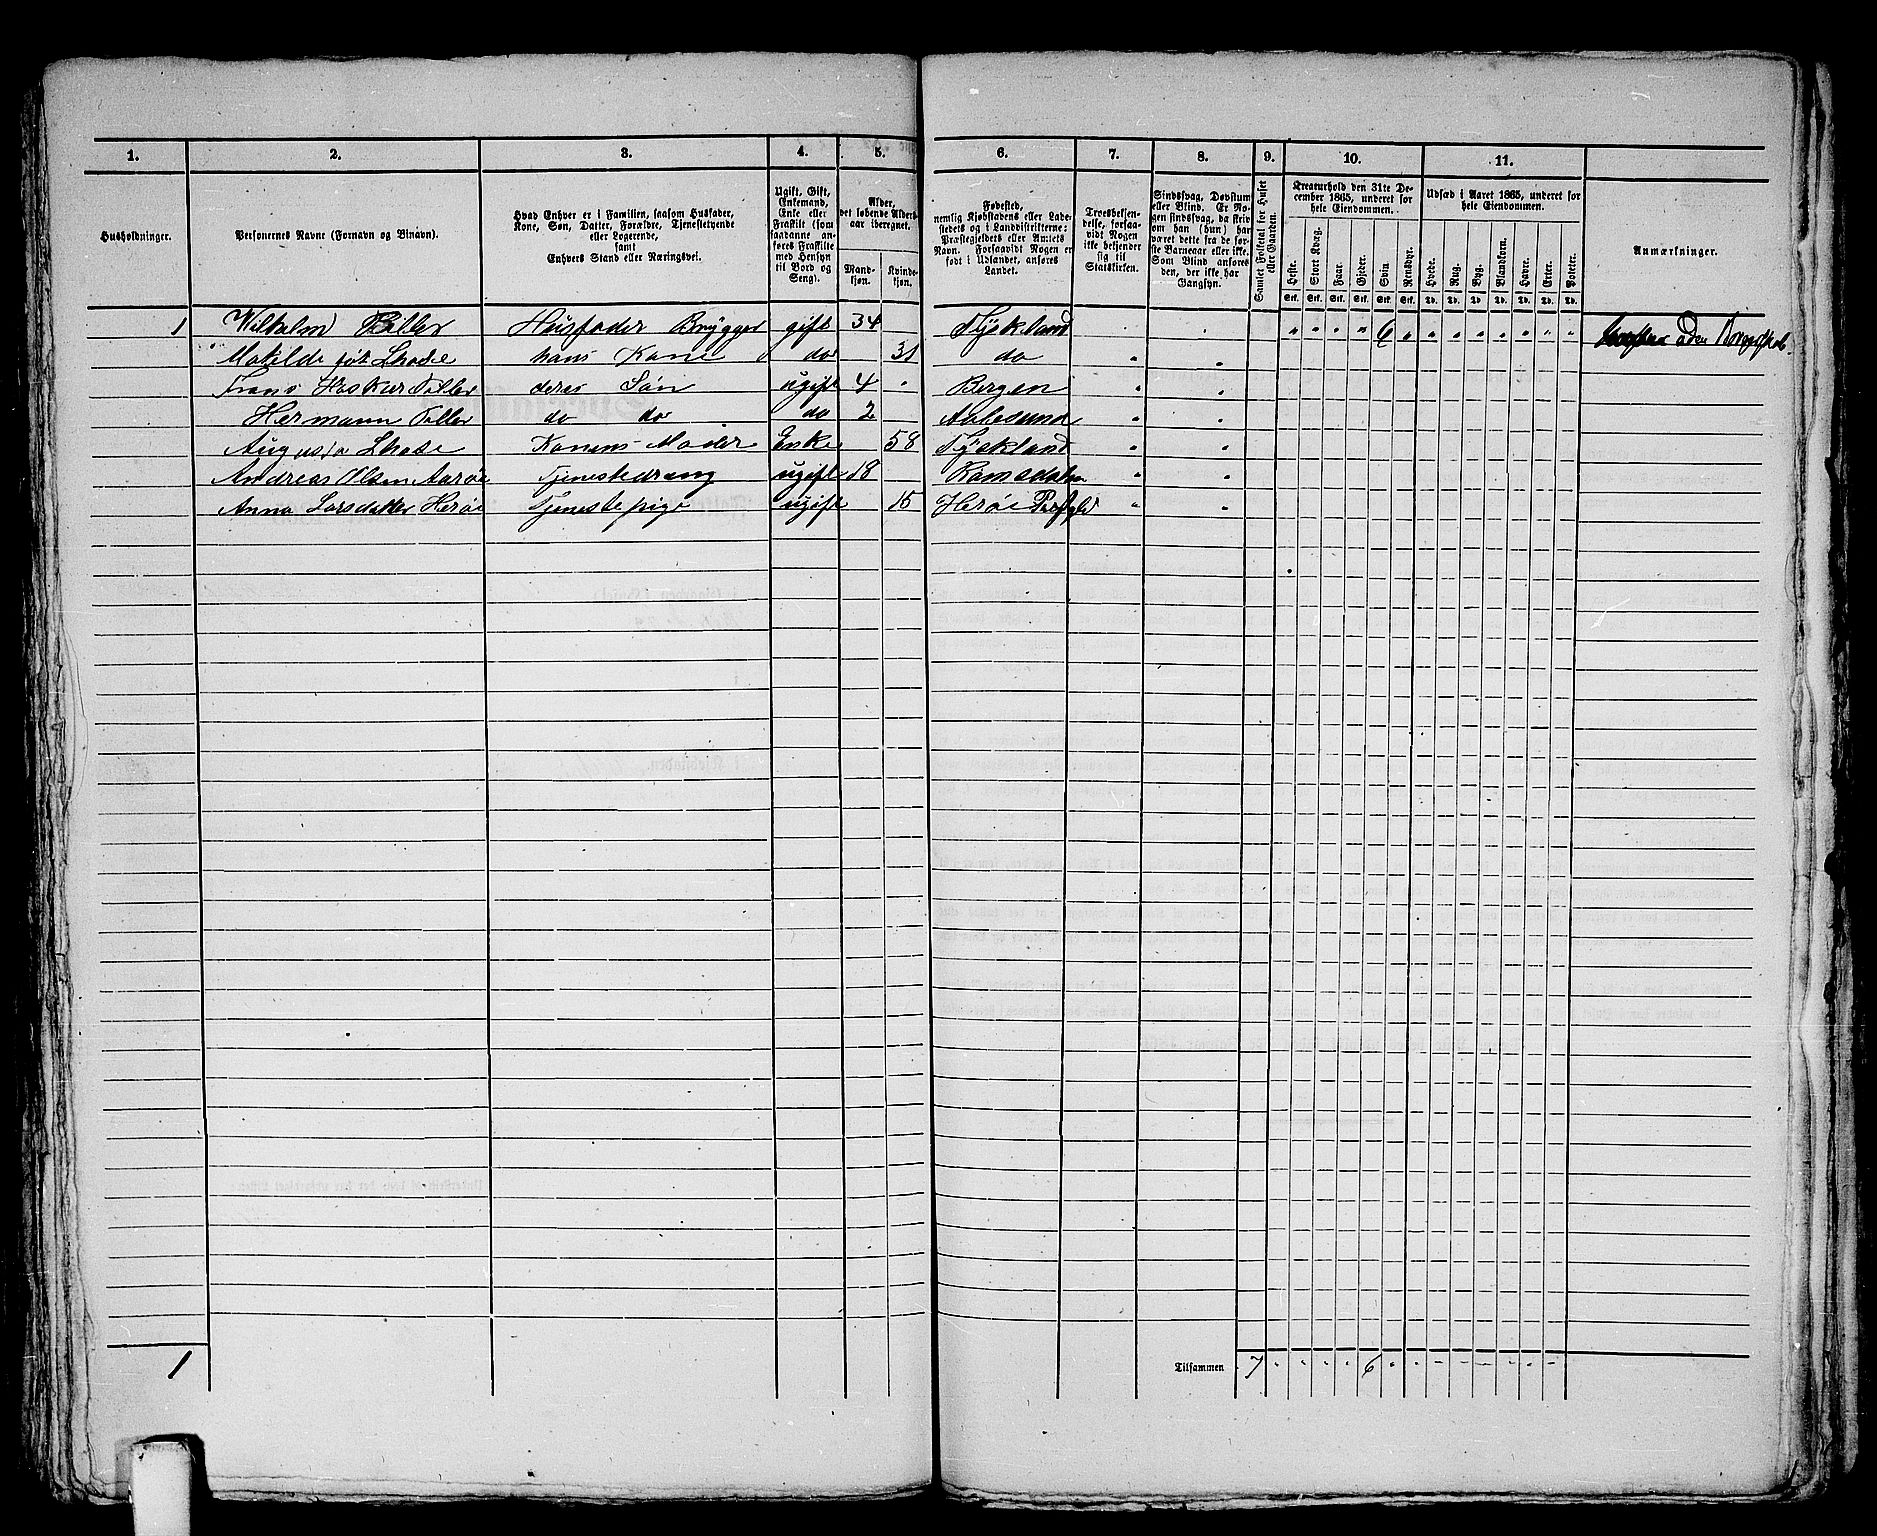 1. 2. 3. 4. 5. 6. 7. 8. 9. 10. 11.
Husholdninger.
Personernes Navne (Fornavn og Binavn).
Hvad Enhver er i Familien, saasom Husfader,
Kone, Søn, Datter, Forældre, Tjenestetyende
eller Logerende,
samt
Enhvers Stand eller Næringsvei.
Ugift, Gift,
Enkemand,
Enke eller
Fraskilt (som
saadanne an-
føres Fraskilte
med Hensyn
til Bord og
Seng).
Alder,
det løbende Alders-
aar iberegnet.
Mand-
kjøn.
Kvinde-
kjøn.
Fødested,
nemlig Kjøbstadens eller Lade-
stedets og i Landdistrikterne:
Præstegjeldets eller Amtets
Navn. Forsaavidt Nogen er
født i Udlandet, anføres
Landet.
Troesbekjen-
delse, forsaa-
vidt Nogen
ikke bekjender
sig til
Statskirken.
Sindssvag, Døvstum
eller Blind. Er No-
gen sindssvag, da skriv
om han (hun) har
været dette fra de før-
ste Barneaar eller ikke.
Som Blind anføres
den, der ikke har
Gangsyn.
Samlet Folketal for Huset
eller Gaarden.
Kreaturhold den 31te De-
cember 1865, underet for
hele Eiendommen.
Heste. Stort Kvæg. Faar. Gjeder. Svin. Rensdyr.
Stk. Stk. Stk. Stk. Stk. Stk.
Udsæd i Aaret 1865, underet for
hele Eiendommen.
Hvede. Rug. Byg. Blandkorn. Havre. Erter. Poteter.
Td. Td. Td. Td. Td. Td. Td.
Anmærkninger.
1 Wilhelm Tiller Husfader Brygger gift 34 Tyskland " " " " 6 " " " " " " " "
Matilde født do hans Kone do 31 do "
Frans Tiller deres Søn ugift 4 " Bergen " "
Hermann Tiller do do do 2 Aalesund " "
Augusta Konens Moder Enke 58 Tyskland " "
Andreas Olsen Aarøe Tjenestedreng ugift 18 Romsdalen " "
Anna Larsdatter Herøe Tjenestepige ugift 15 Herøe Præstgld " "
1 Tilsammen 7 " " " " 6 " " " " " " "